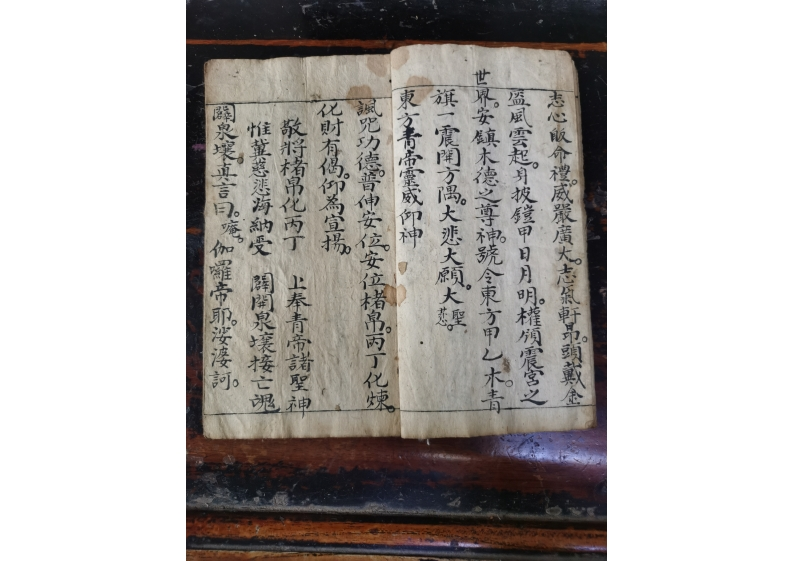 志心皈命禮。威嚴廣大。志氣軒昂。頭戴金
盔風雲起。身披鎧甲日月明。權領震宮之
世界。安鎮木德之尊神。號令東方甲乙木。青
旗一震開方隅。大悲大願。大聖
慈。
東方青帝靈威仰神
諷咒功德。普伸安位。安位楮帛。丙丁化煉。
化財有偈。仰為宣揚。
敬將楮帛化丙丁 上奉青帝諸聖神
惟冀慈悲海納受 闢開泉壤接亡魂
闢泉壤真言曰。唵。伽囉帝耶娑婆訶。